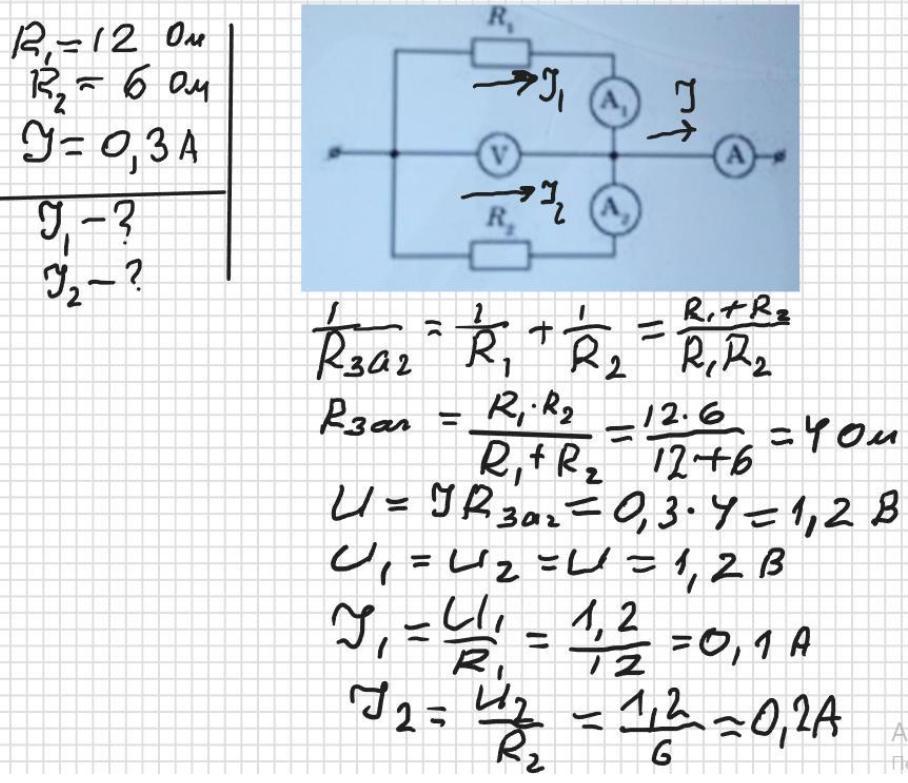 R₁ = 12 Ом
R₂ = 6 Ом
I = 0,3 A
I₁ - ?
I₂ - ?
R₁
I₁
A₁
I
V
A
I₂
A₂
R₂
1/Rзаг = 1/R₁ + 1/R₂ = (R₁+R₂)/(R₁R₂)
Rзаг = (R₁·R₂)/(R₁+R₂) = (12·6)/(12+6) = 4 Ом
U = IRзаг = 0,3·4 = 1,2 В
U₁ = U₂ = U = 1,2 В
I₁ = U₁/R₁ = 1,2/12 = 0,1 A
I₂ = U₂/R₂ = 1,2/6 = 0,2A